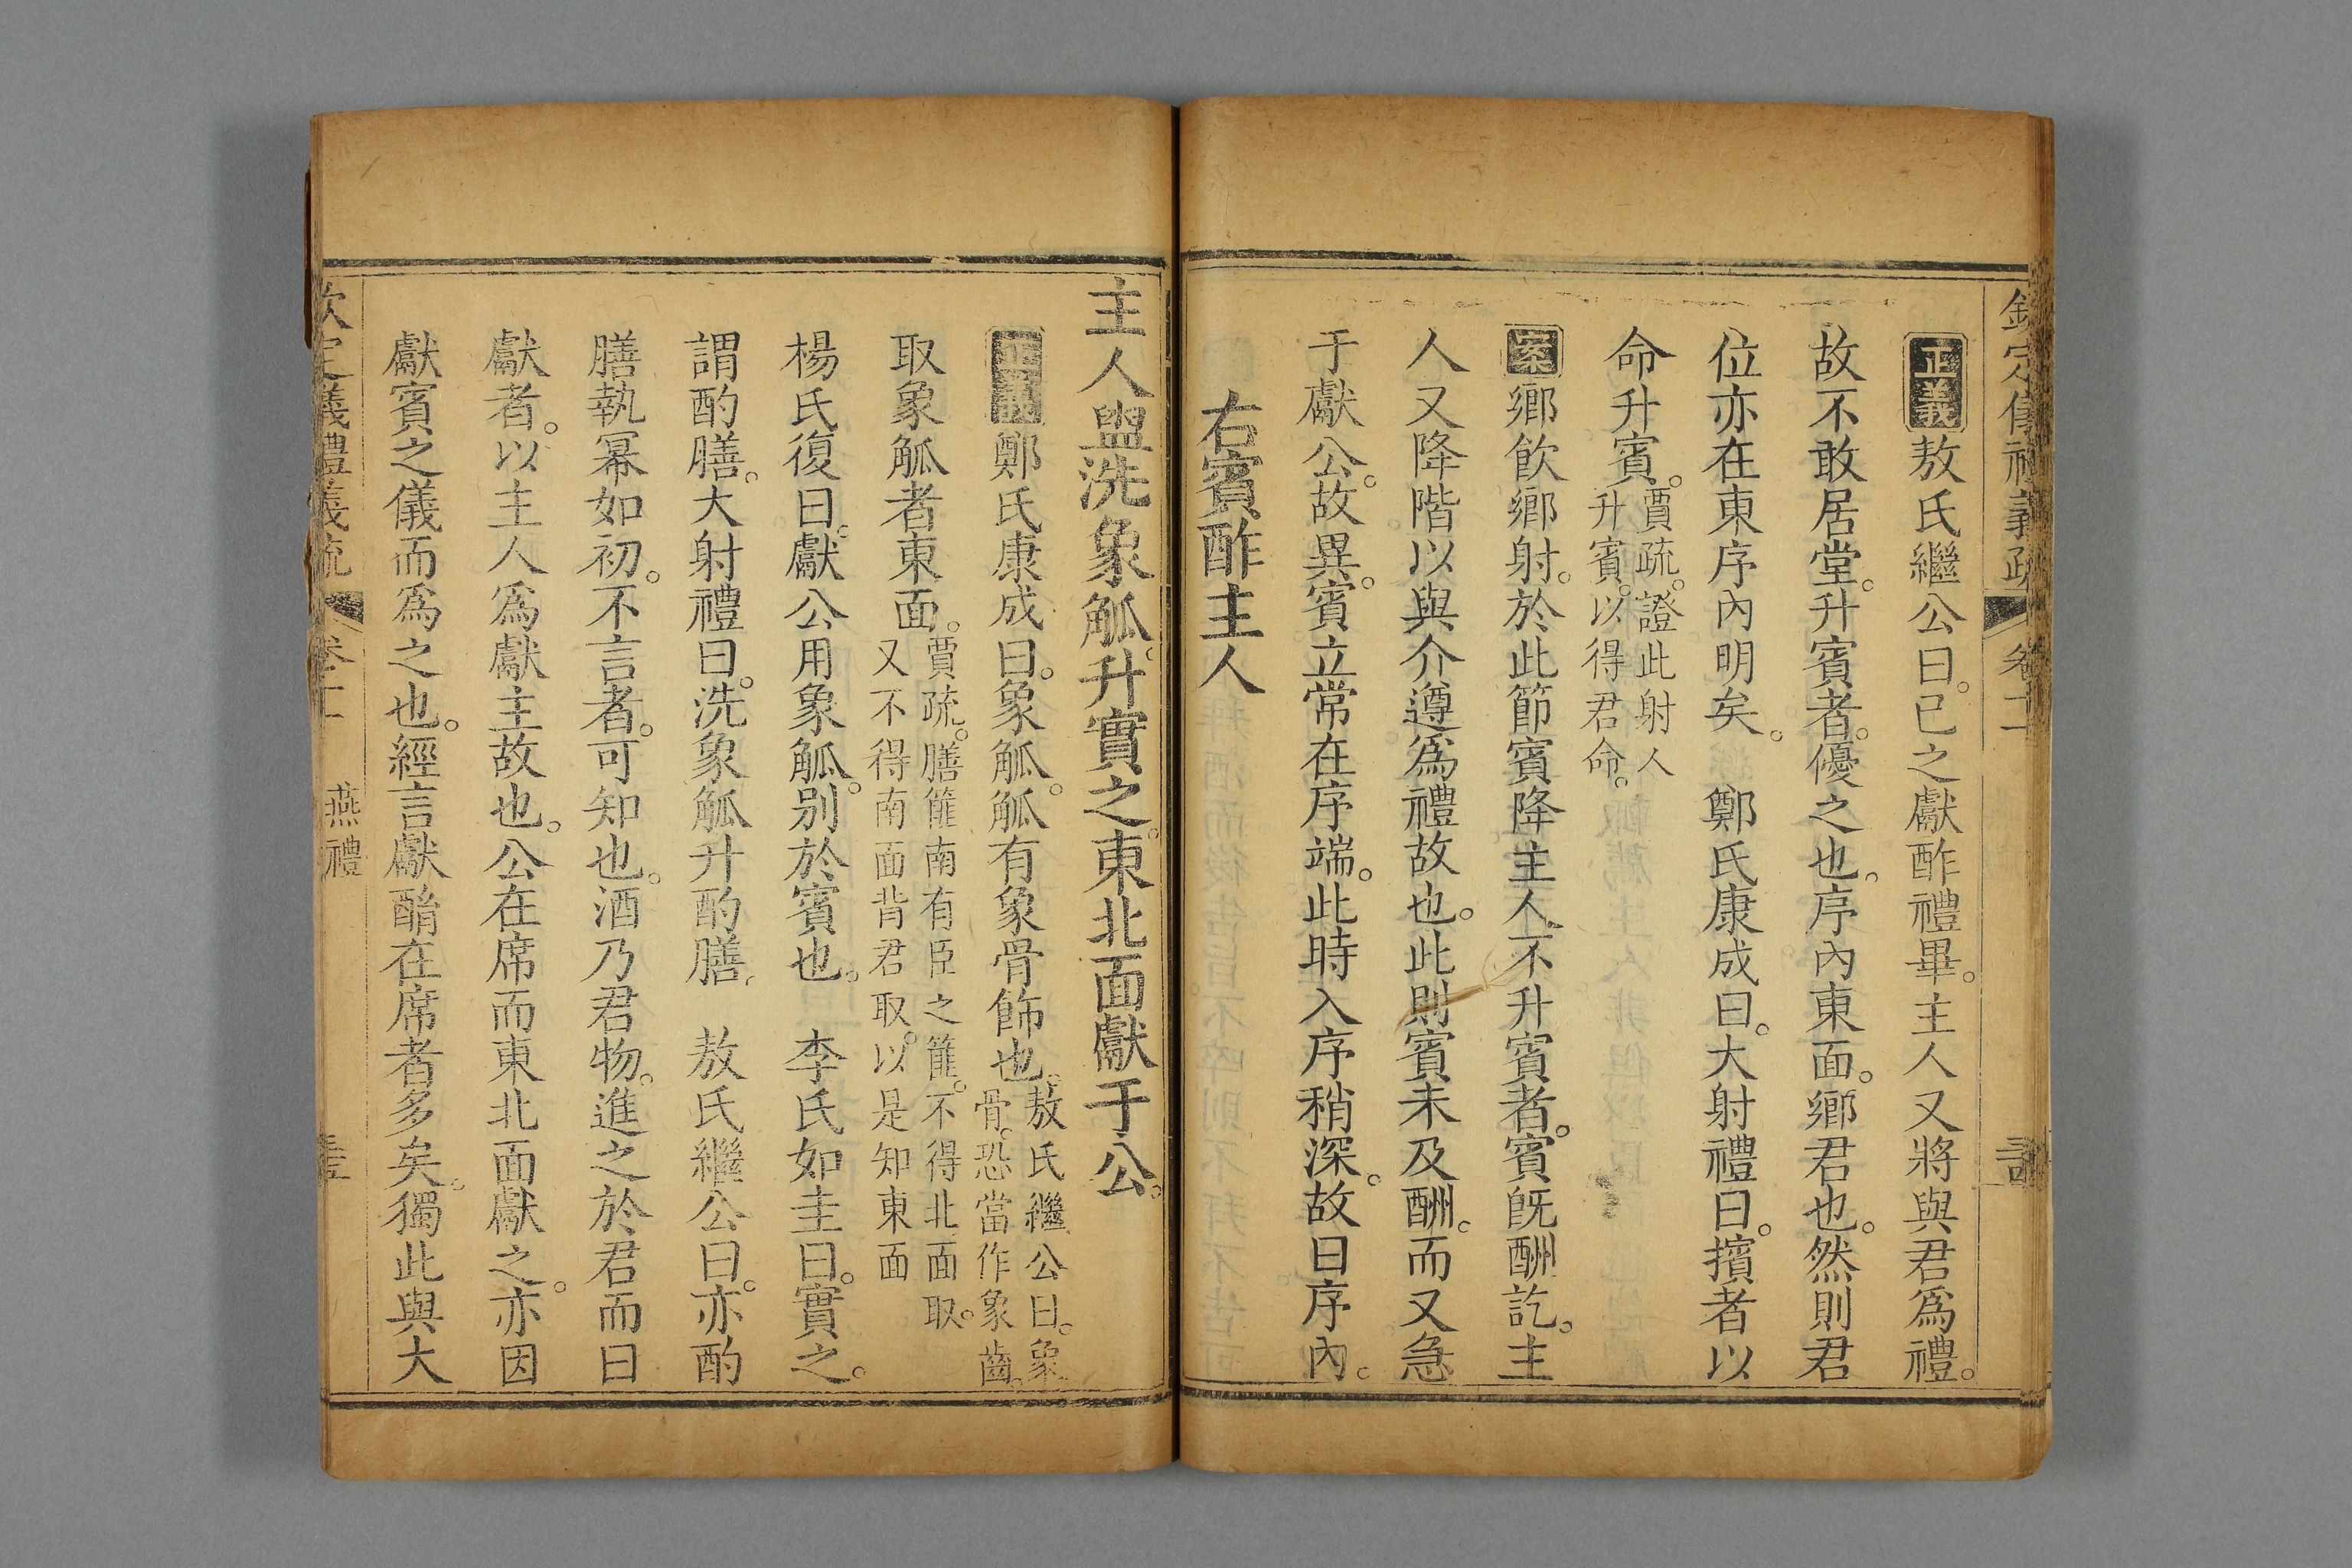 正義敖氏繼公曰。已之獻酢禮畢。主人又將與君爲禮。
故不敢居堂。升賓者。優之也。序內東面。鄉君也。然則君
位亦在東序內明矣。　鄭氏康成曰。大射禮曰。擯者以
命升賓。賈疏。證此射人
升賓。以得君命。
案鄉飲鄉射。於此節賓降主人不升賓者。賓旣酬訖。主
人又降階以與介遵爲禮故也。此則賓未及酬。而又急
于獻公。故異。賓立常在序端。此時入序稍深。故曰序內。
右賓酢主人
主人盥洗象觚。升實之。東北面獻于公。
正義鄭氏康成曰。象觚。觚有象骨飾也。敖氏繼公曰。象
骨。恐當作象齒。
取象觚者東面。賈疏。膳篚南有臣之篚。不得北面取。
又不得南面背君取。以是知東面
楊氏復曰。獻公用象觚。别於賓也。　李氏如圭曰。實之。
謂酌膳。大射禮曰。洗象觚升酌膳。　敖氏繼公曰。亦酌
膳執冪如初。不言者。可知也。酒乃君物。進之於君而曰
獻者。以主人爲獻主故也。公在席而東北面獻之。亦因
獻賓之儀而爲之也。經言獻酳在席者多矣。獨此與大
儀禮義疏
燕禮